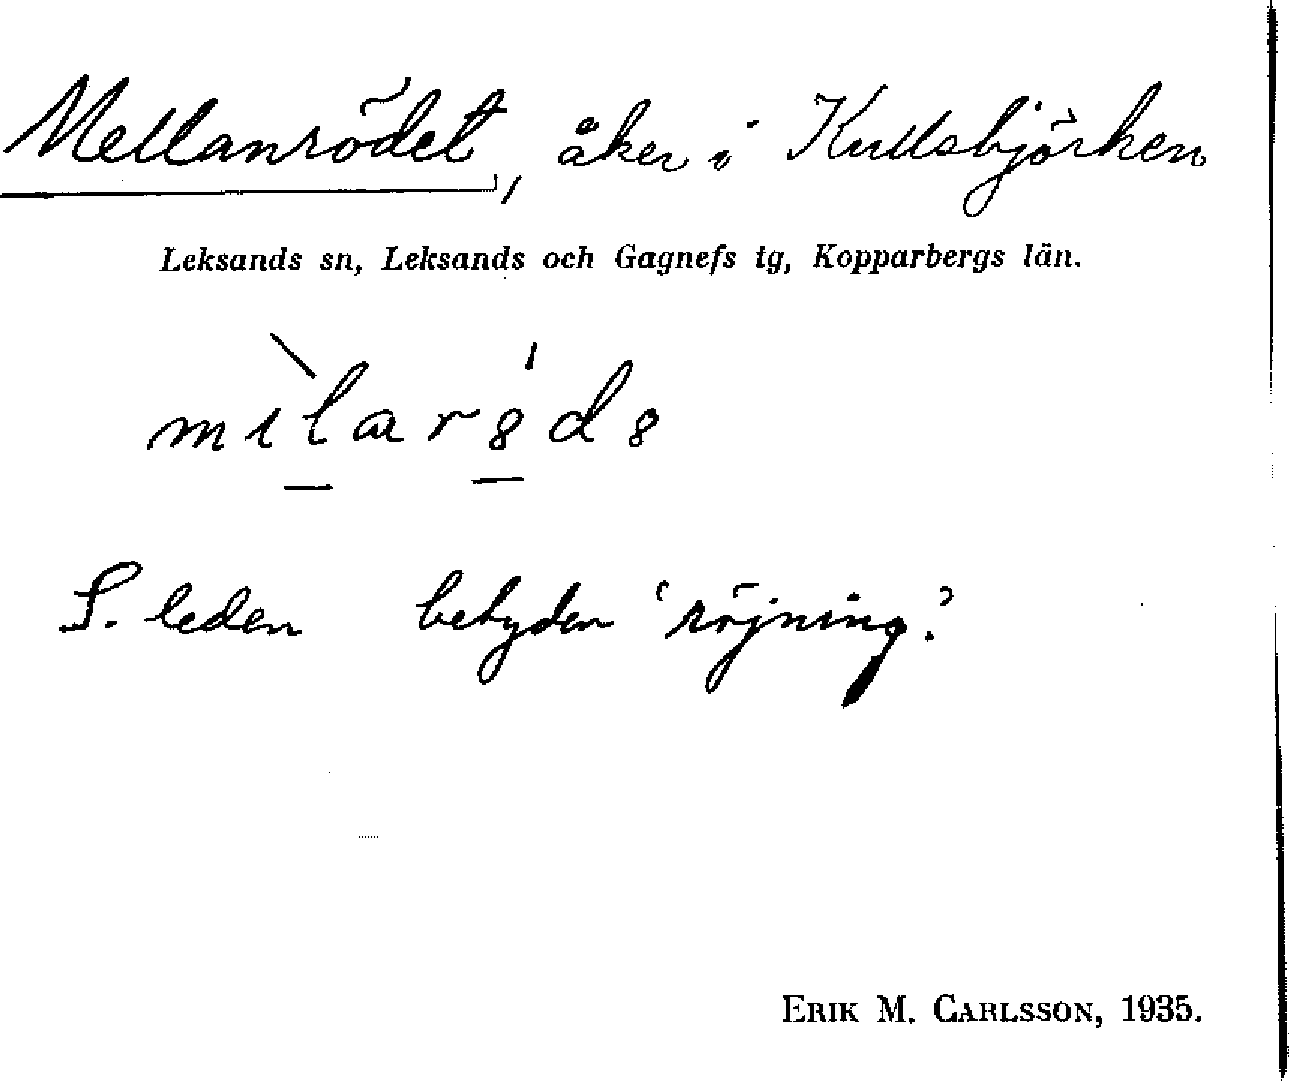 Mellanrödet, åker i Kullsbjörken
Leksands sn, Leksands och Gagnefs tg, Kopparbergs län.
S. leden betyder 'röjning'.
ERIK M. CARLSSON, 1935.